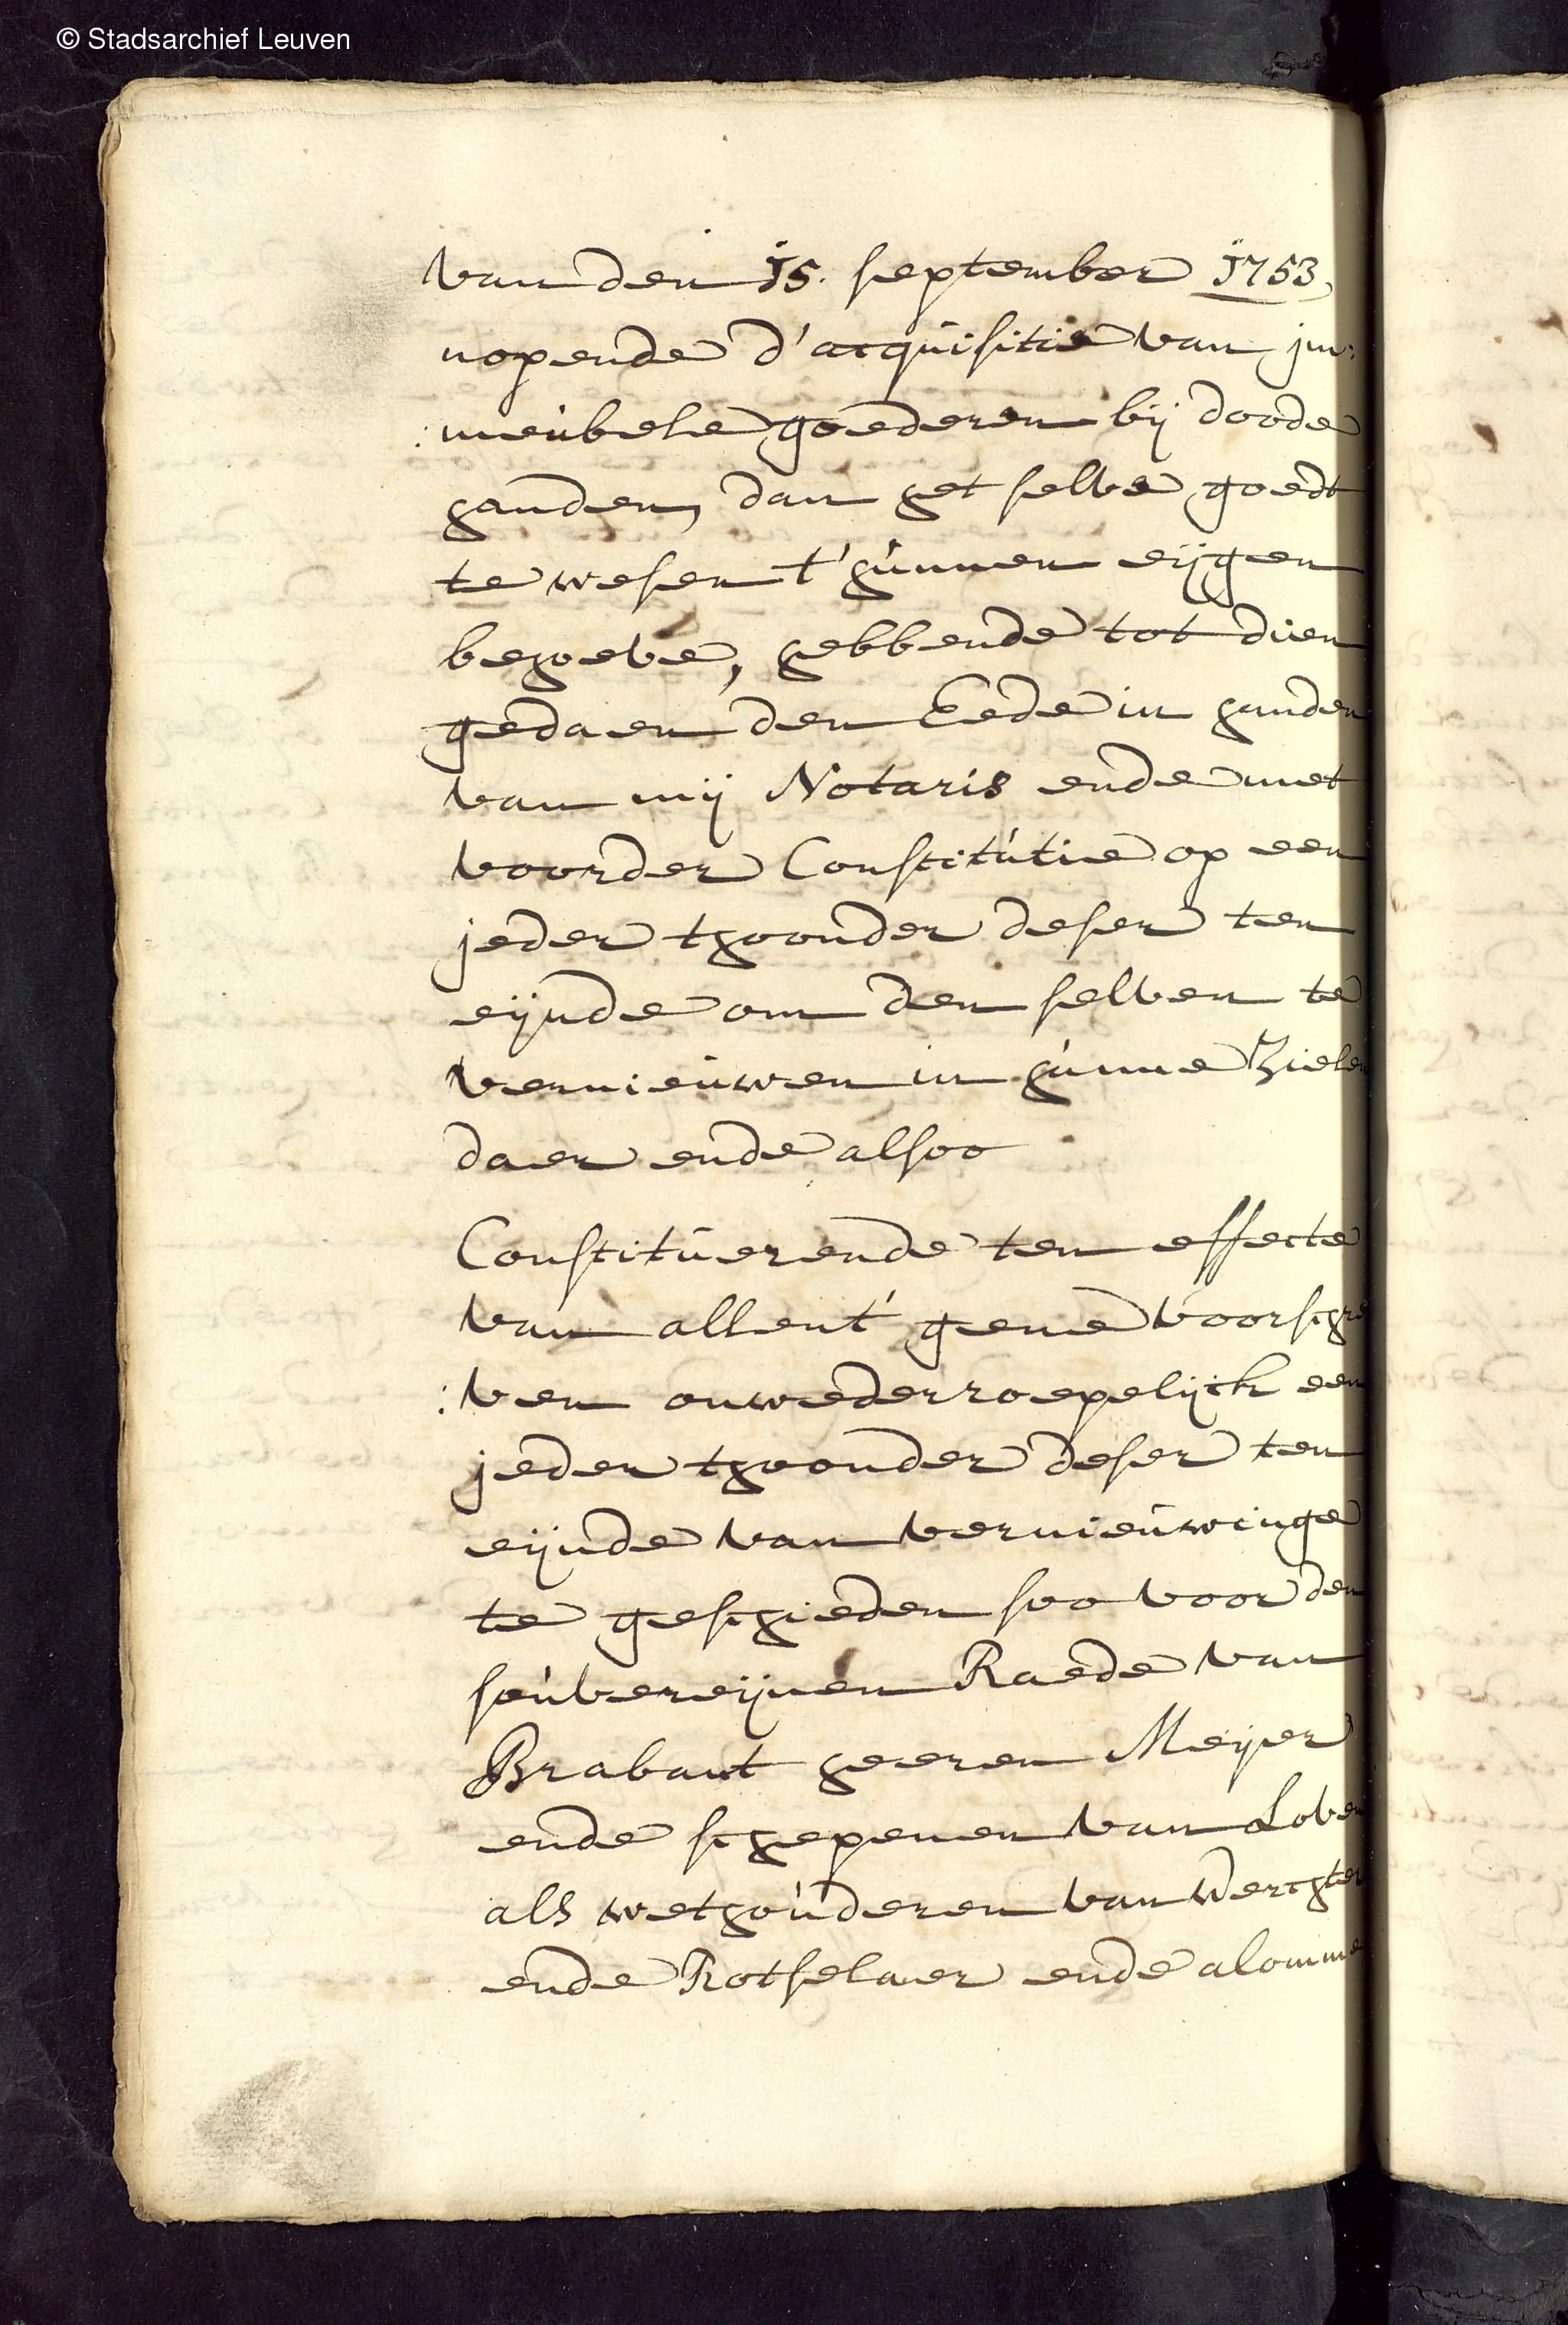 © Stadsarchief Leuven
van den 15. september 1753,
nopende d'acquisitie van im:
:meubele goederen bij doode
handen, dan het selve goedt
te wesen t'hunnen eijgen
behoeve, hebbende tot dien
gedaen den Eede in handen
van mij Notaris ende met
voorder Constitutie op een
jeder thoonder deser ten
eijnde om den selven te
vernieuwen in hunne Zielen
daer ende alsoo
Constituerende ten effecte
van allent' gene voorschre
:ven onwederroepelijck een
jeder thoonder deser ten
eijnde van vernieuwinge
te geschieden soo voor den
souvereijnen Raede van
Brabant heeren Meijer
ende schepenen van Loven
als wethouderen van Werchter
ende Rotselaer ende alomme